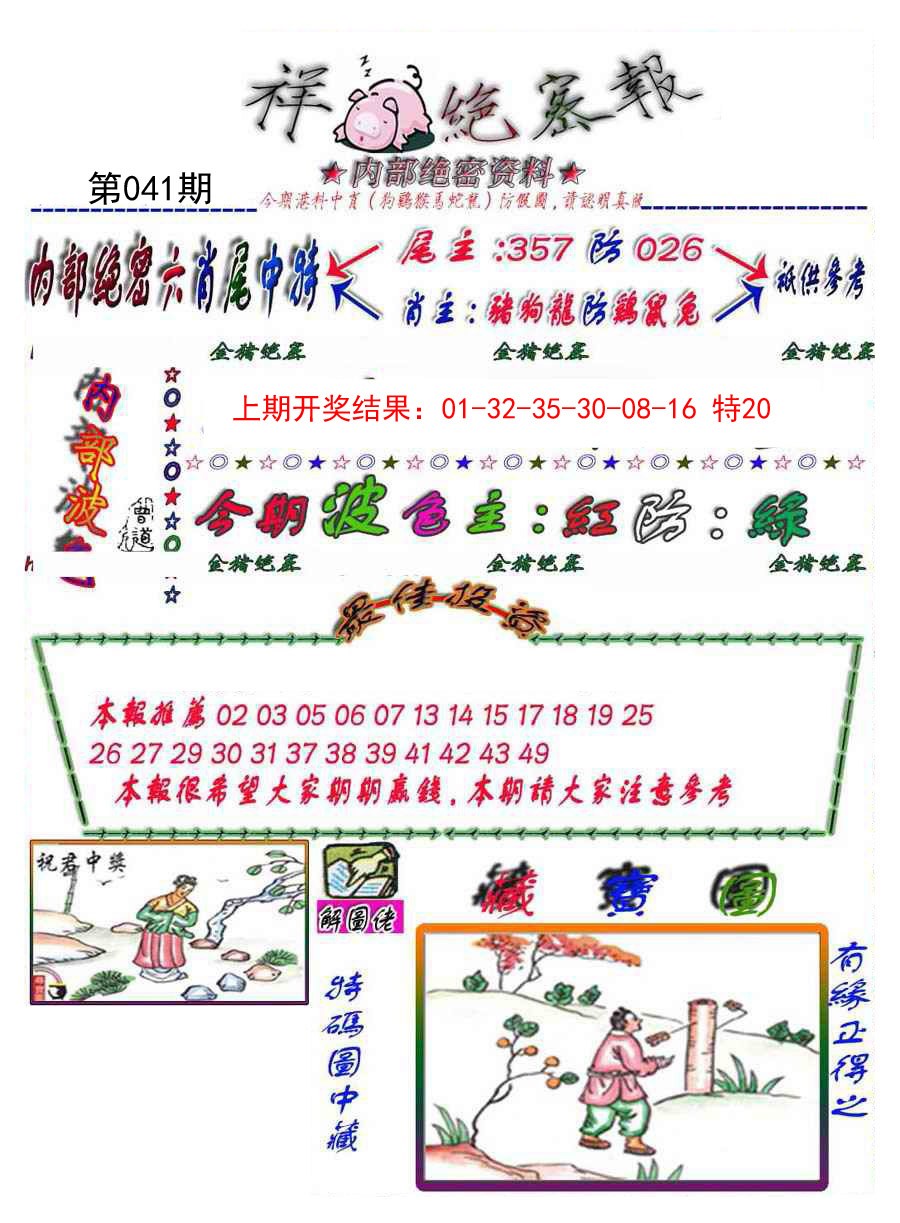 祥 絶密報
★内部绝密资料★
第041期
今期港料中肖(狗鷄猴馬蛇龍)防假圖,請認明真版
内部绝密六肖尾中特
尾主:357防026
肖主:豬狗龍防鷄鼠兔
衹供參考
金猪绝密 金猪绝密 金猪绝密
内部波
曾道
上期开奖结果：01-32-35-30-08-16 特20
☆◎★☆◎★☆◎★☆◎★☆◎★☆◎★☆◎★☆◎★☆◎★☆
今期波色主:紅防:綠
金猪绝密 金猪绝密 金猪绝密
最佳投註
本報推薦 02 03 05 06 07 13 14 15 17 18 19 25
26 27 29 30 31 37 38 39 41 42 43 49
本報很希望大家期期贏錢,本期請大家注意參考
祝君中獎
解圖佬
藏寶圖
特碼圖中藏
有緣正得之